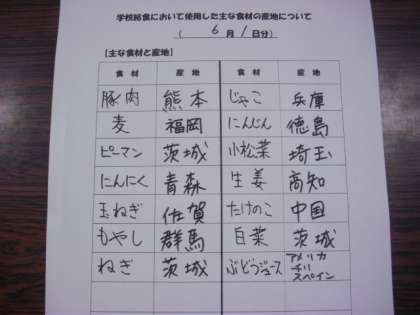 学校給食において使用した主な食材の産地について
( 6月 1日分)
【主な食材と産地】
食材 産地 食材 産地
豚肉 熊本 じゃこ 兵庫
麦 福岡 にんじん 徳島
ピーマン 茨城 小松菜 埼玉
にんにく 青森 生姜 高知
玉ねぎ 佐賀 たけのこ 中国
もやし 群馬 白菜 茨城
ねぎ 茨城 ぶどうジュース アメリカ
チリ
スペイン